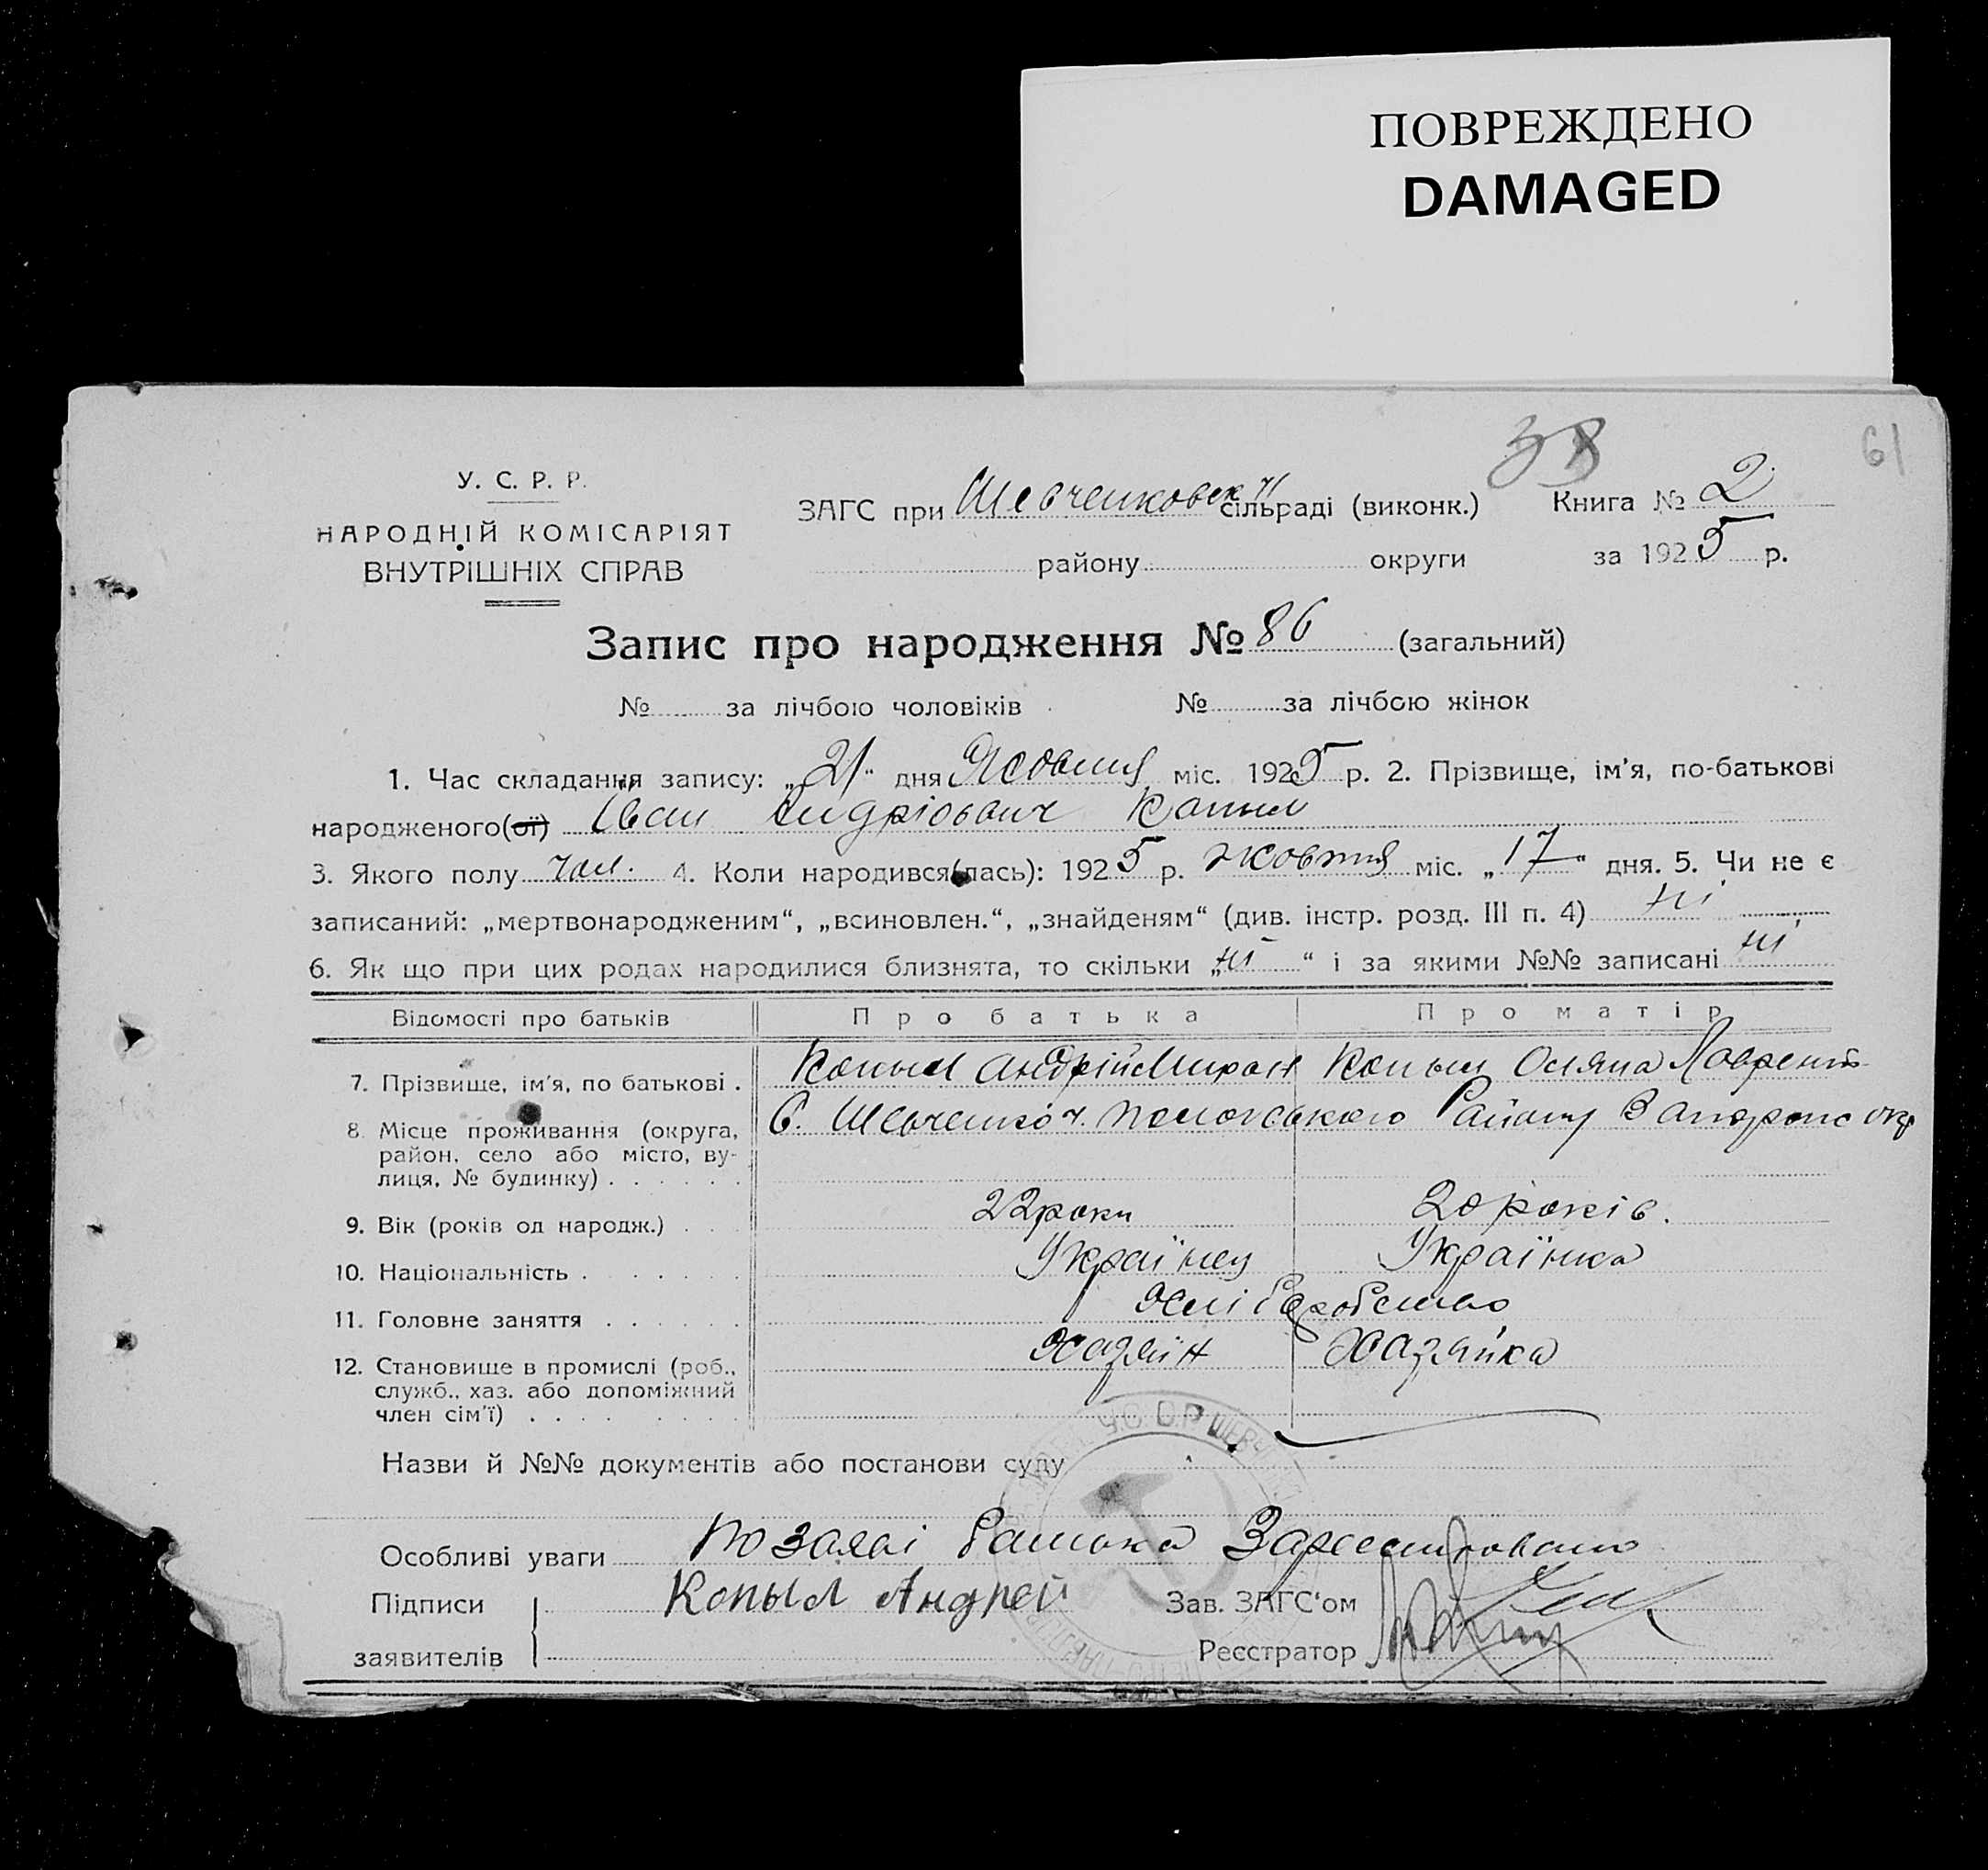 ПОВРЕЖДЕНО
DAMAGED
38
61
У. С. Р. Р.
НАРОДНІЙ КОМІСАРІЯТ
ВНУТРІШНІХ СПРАВ
ЗАГС при Шевченковск сільраді (виконк.) Книга № 2
району округи за 1925 р.
Запис про народження № 86 (загальний)
№ за лічбою чоловіків № за лічбою жінок
1. Час складання запису: „21“ дня Жовтня міс. 1925 р. 2. Прізвище, ім'я, по-батькові
народженого(ої) Іван Андріович Копил
3. Якого полу чол. 4. Коли народився(лась): 1925 р. жовтня міс. „17“ дня. 5. Чи не є
записаний: „мертвонародженим“, „всиновлен.“, „знайденям“ (див. інстр. розд. III п. 4) ні
6. Як що при цих родах народилися близнята, то скільки „ні“ і за якими №№ записані ні
Відомості про батьків Про батька Про матір
7. Прізвище, ім'я, по батькові . Копыл Андрій Мирон Копыл Оляна Лаврент
8. Місце проживання (округа, С. Шевченко Району Запорож окр
район, село або місто, ву-
лиця, № будинку)
9. Вік (років од народж.) 22 роки 20 років.
10. Національність Українец Українка
11. Головне заняття Хліборобство
12. Становище в промислі (роб., Хазяїн Хазяйка
служб., хаз. або допоміжний
член сім'ї)
Назви й №№ документів або постанови суду
Особливі уваги По заяві батька Зареєстровано
Підписи Копыл Андрей Зав. ЗАГС'ом
заявителів Реєстратор